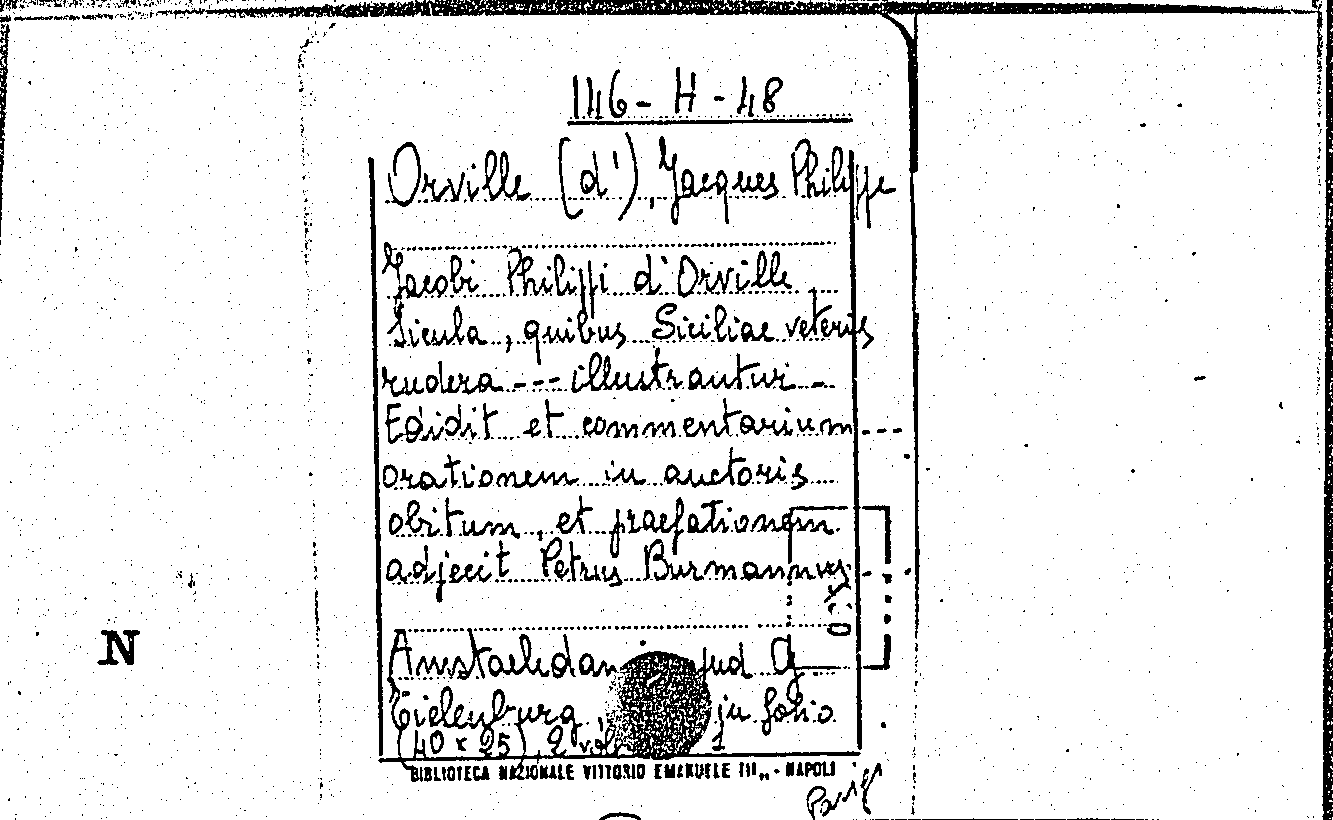 146-H-48
Orville (d'), Jacques Philippe
Jacobi Philippi d'Orville
Sicula, quibus Siciliae veteris
rudera --- illustrantur --
Edidit et commentarium ---
orationem in auctoris
obitum, et praefationem
adjecit Petrus Burmannus - -
G.
Tielenburg, in folio
(40 x 25), 2 vol
BIBLIOTECA NAZIONALE VITTORIO EMANUELE III,, - NAPOLI
N